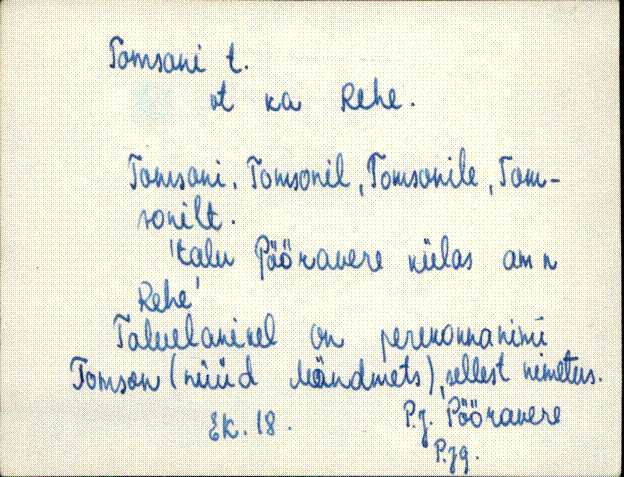 Tomsoni t.
vt ka Rehe.
Tomsoni, Tomsonil, Tomsonile, Tom-
sonilt.
'talu Pööravere külas am n
Rehe'
Taluelanikel on perekonnanimi
Tomson (nüüd Mändmets), sellest nimetus.
EK. 18. P.j. Pööravere
P.jg.